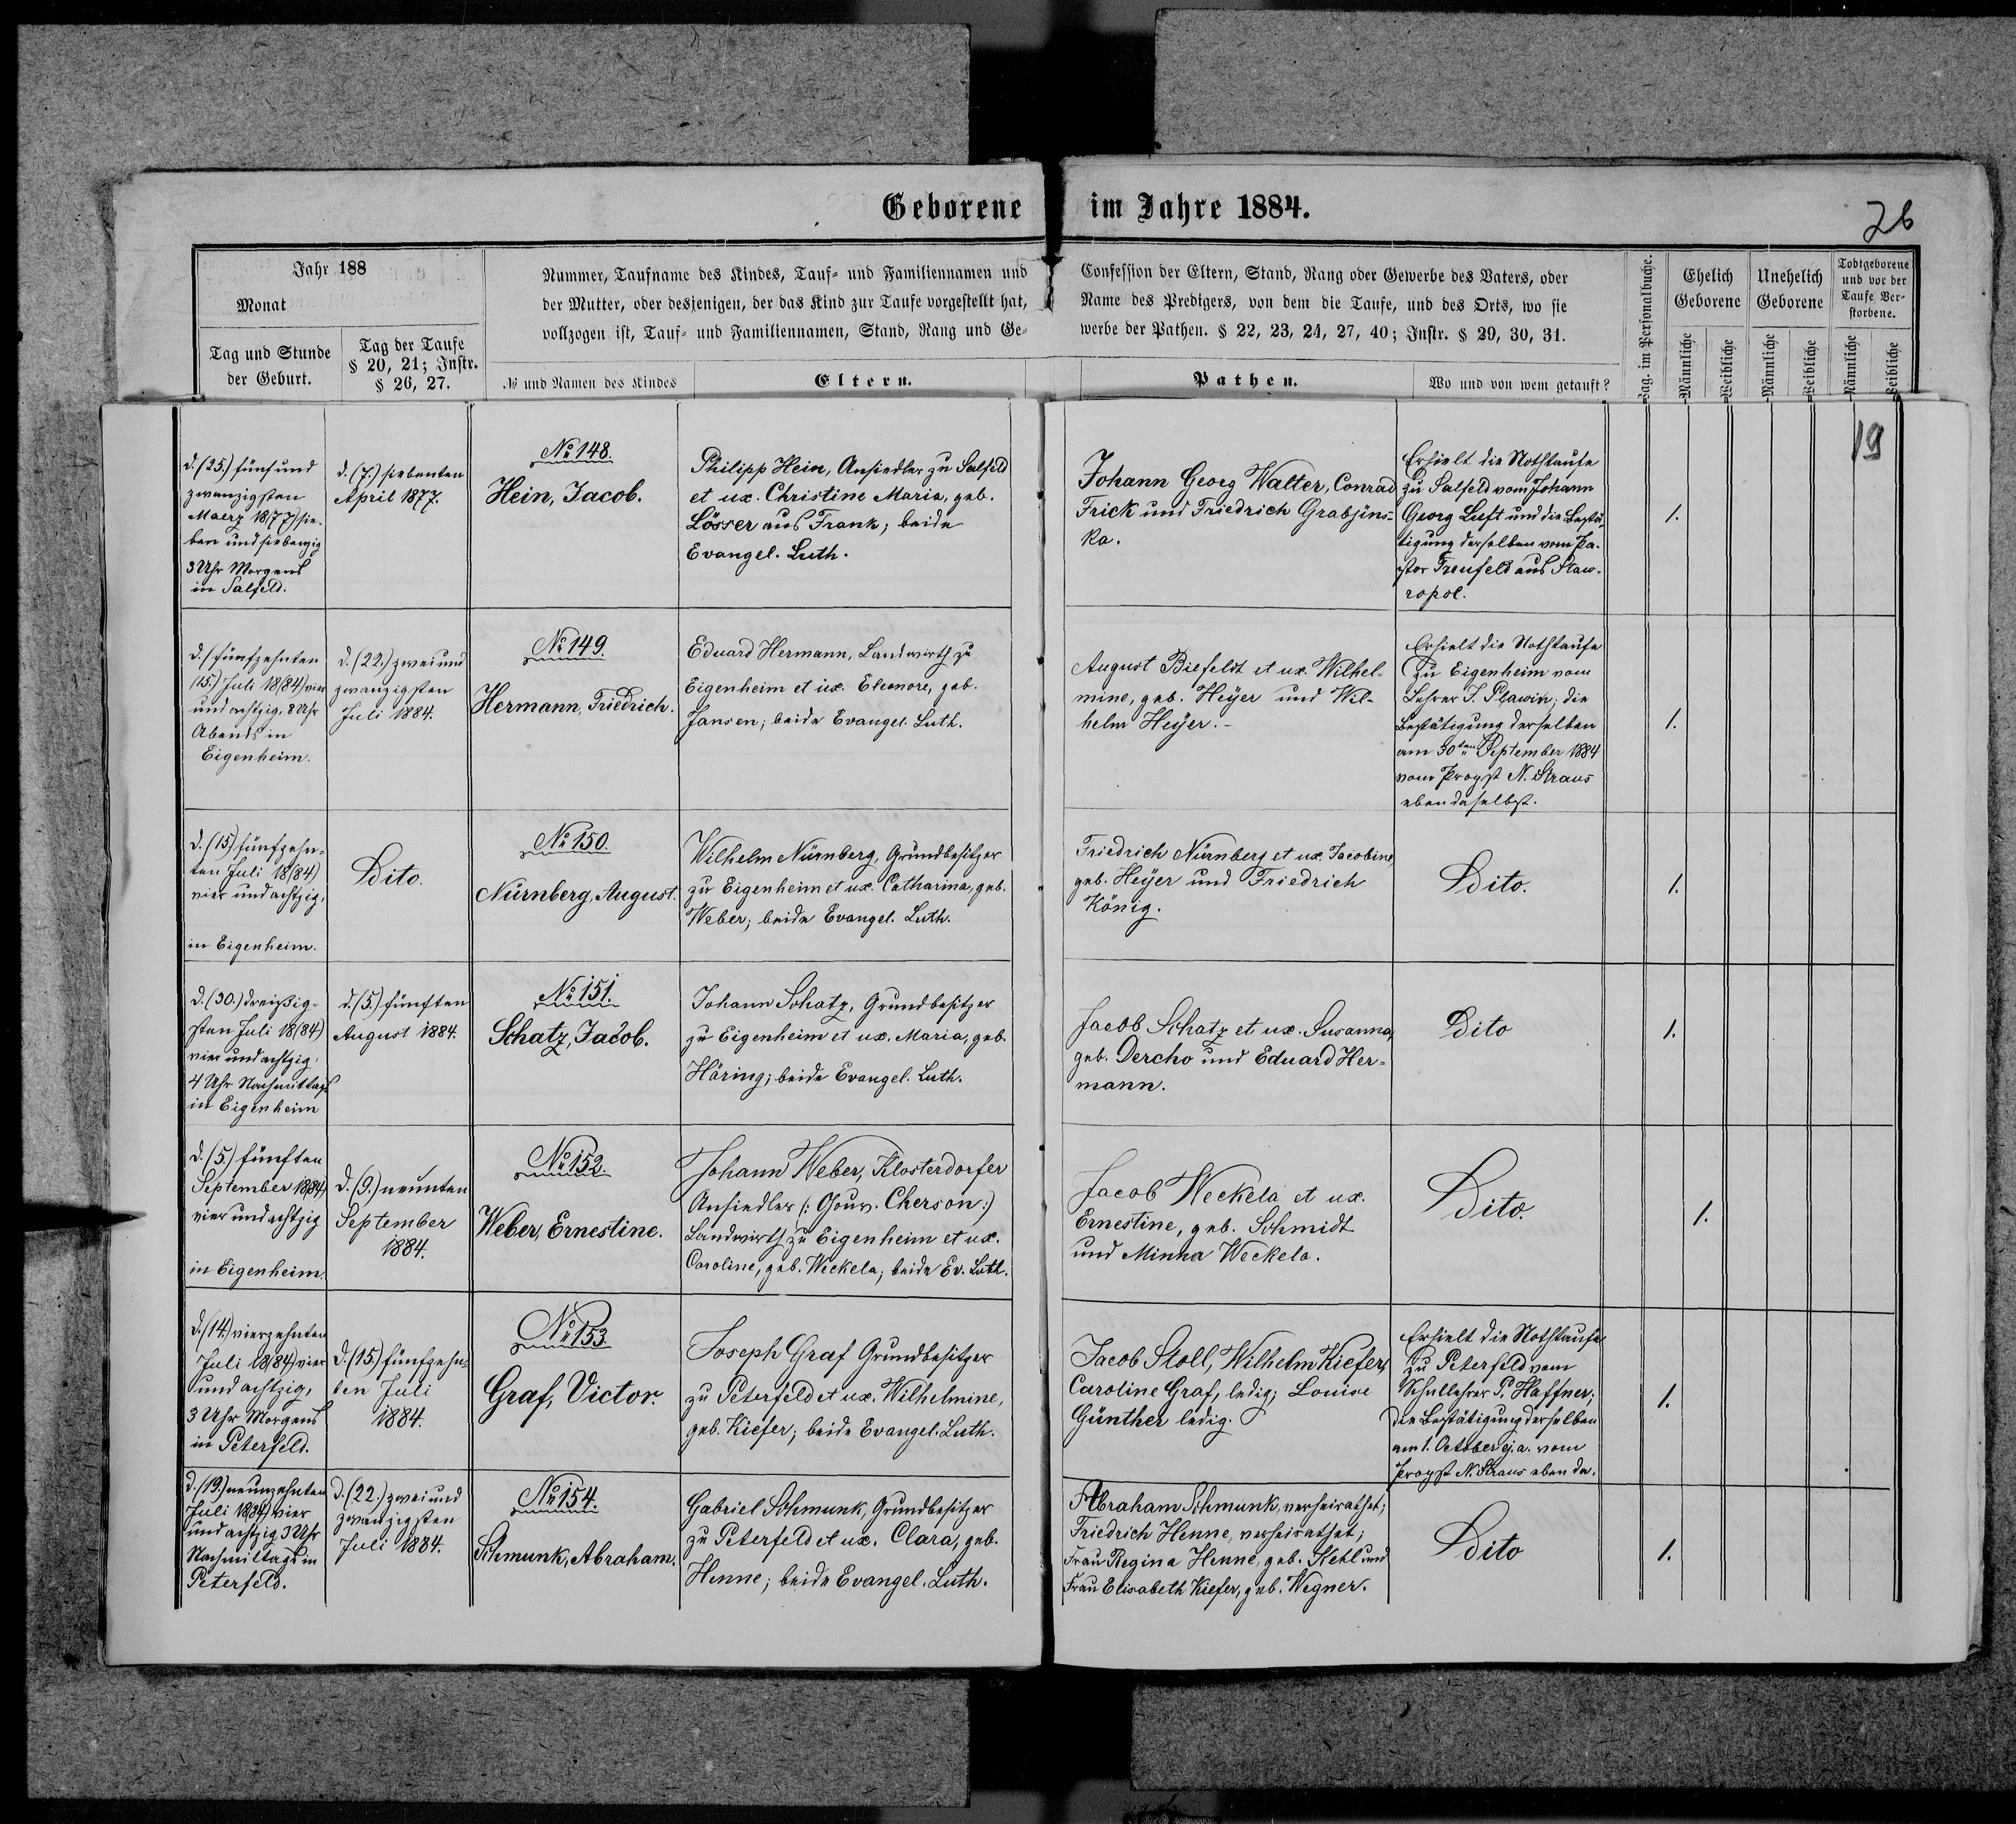 Geborene im Jahre 1884.
26
Jahr 188
Monat
Tag und Stunde
der Geburt.
Tag der Taufe
§ 20, 21; Instr.
§ 26, 27.
Nummer, Taufname des Kindes, Tauf- und Familiennamen und
der Mutter, oder desjenigen, der das Kind zur Taufe vorgestellt hat,
vollzogen ist, Tauf- und Familiennamen, Stand, Rang und Ge-
№ und Namen des Kindes
Eltern.
Confession der Eltern, Stand, Rang oder Gewerbe des Vaters, oder
Name des Predigers, von dem die Taufe, und des Orts, wo sie
werbe der Pathen. § 22, 23, 24, 27, 40; Instr. § 29, 30, 31.
Pathen.
Wo und von wem getauft?
Pag. im Personalbuche.
Ehelich
Geborene
Unehelich
Geborene
Todtgeborene
und vor der
Taufe Ver-
storbene.
Männliche
Weibliche
Männliche
Weibliche
Männliche
Weibliche
19
d. (25.) fünfund
zwanzigsten
Maerz 18(77) sie-
ben und siebenzig
3 Uhr Morgens
in Salfeld.
d. (7.) siebenten
April 1877.
№ 148.
Hein, Jacob.
Philipp Hein, Ansiedler zu Salfeld
et ux. Christine Maria, geb.
Lösser aus Frank; beide
Evangel. Luth.
Johann Georg Walter, Conrad
Frick und Friedrich Grabjins-
ka.
Erhielt die Nothtaufe
zu Salfeld vom Johann
Georg Luft und die Bestä-
tigung derselben vom Pa-
stor Treufeld aus Staw-
ropol.
1.
d. fünfzehnten
(15.) Juli 18(84) vier
und achtzig, 8 Uhr
Abends in
Eigenheim.
d. (22.) zweiund
zwanzigsten
Juli 1884.
№ 149.
Hermann, Friedrich.
Eduard Hermann, Landwirth zu
Eigenheim et ux. Eleonore, geb.
Jansen; beide Evangel. Luth.
August Biefeldt et ux. Wilhel-
mine, geb. Heyer und Wil-
helm Heyer.-
Erhielt die Nothtaufe
zu Eigenheim vom
Lehrer J. Plawin; die
Bestätigung derselben
am 30ten September 1884
vom Propst N. Straus
ebendaselbst.
1.
d. (15) fünfzehn-
ten Juli 18(84)
vier und achtzig,
in Eigenheim.
Dito.
№ 150.
Nürnberg, August.
Wilhelm Nürnberg, Grundbesitzer
zu Eigenheim et ux. Catharina, geb.
Weber; beide Evangel. Luth.
Friedrich Nürnberg et ux. Jacobine,
geb. Heyer und Friedrich
König.
Dito.
1.
d. (30.) dreißig-
sten Juli 18(84)
vier und achtzig,
4 Uhr Nachmittags
in Eigenheim
d. (5.) fünften
August 1884.
№ 151.
Schatz, Jacob.
Johann Schatz, Grundbesitzer
zu Eigenheim et ux. Maria, geb.
Häring; beide Evangel. Luth.
Jacob Schatz et ux. Susanna,
geb. Dercho und Eduard Her-
mann.
Dito
1.
d. (5.) fünften
September 18(84)
vier und achtzig
in Eigenheim.
d. (9.) neunten
September
1884.
№ 152.
Weber, Ernestine.
Johann Weber, Klosterdorfer
Ansiedler (: Gouv. Cherson :)
Landwirth zu Eigenheim et ux.
Caroline, geb. Weckela; beide Ev. Luth.
Jacob Weckela et ux.
Ernestine, geb. Schmidt
und Minna Weckela.
Dito.
1.
d. (14.) vierzehnten
Juli 18(84) vier
und achtzig,
3 Uhr Morgens
in Peterfeld.
d. (15.) fünfzehn-
ten Juli
1884.
№ 153.
Graf, Victor.
Joseph Graf Grundbesitzer
zu Peterfeld et ux. Wilhelmine,
geb. Kiefer; beide Evangel. Luth.
Jacob Stoll, Wilhelm Kiefer,
Caroline Graf, ledig; Louise
Günther ledig.
Erhielt die Nothtaufe
zu Peterfeld vom
Schullehrer P. Haffner;
die Bestätigung derselben
am 1. October ej. a. vom
Propst N. Straus eben da.
1.
d. (19.) neunzehnten
Juli 18(84) vier
und achtzig 3 Uhr
Nachmittags in
Peterfeld.
d. (22.) zweiund
zwanzigsten
Juli 1884.
№ 154.
Schmunk, Abraham.
Gabriel Schmunk, Grundbesitzer
zu Peterfeld et ux. Clara, geb.
Henne; beide Evangel. Luth.
Abraham Schmunk, verheirathet;
Friedrich Henne, verheirathet;
Frau Regina Henne, geb. Kehl und
Frau Elisabeth Kiefer, geb. Wegner.
Dito
1.